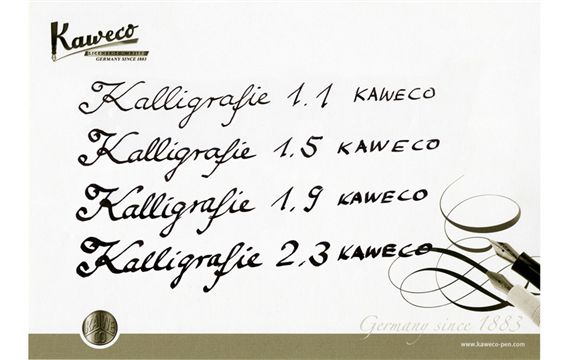 Kaweco
GERMANY SINCE 1883
Kalligrafie 1.1 KAWECO
Kalligrafie 1.5 KAWECO
Kalligrafie 1.9 KAWECO
Kalligrafie 2.3 KAWECO
Germany since 1883
www.kaweco-pen.com